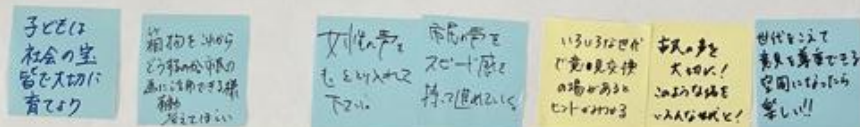 子どもは
社会の宝
皆で大切に
育てよう
箱物をこれから
どう
為に活用できる様
考えてほしい
女性の声を
もっととり入れて
下さい。
市民の声を
スピード感を
持って進めていく。
いろいろな世代
で意見交換
の場があると
ヒントがみつかる
市民の声を
大切に!
このような場を
いろんな世代と!
世代をこえて
意見を尊重できる
空間になったら
楽しい!!